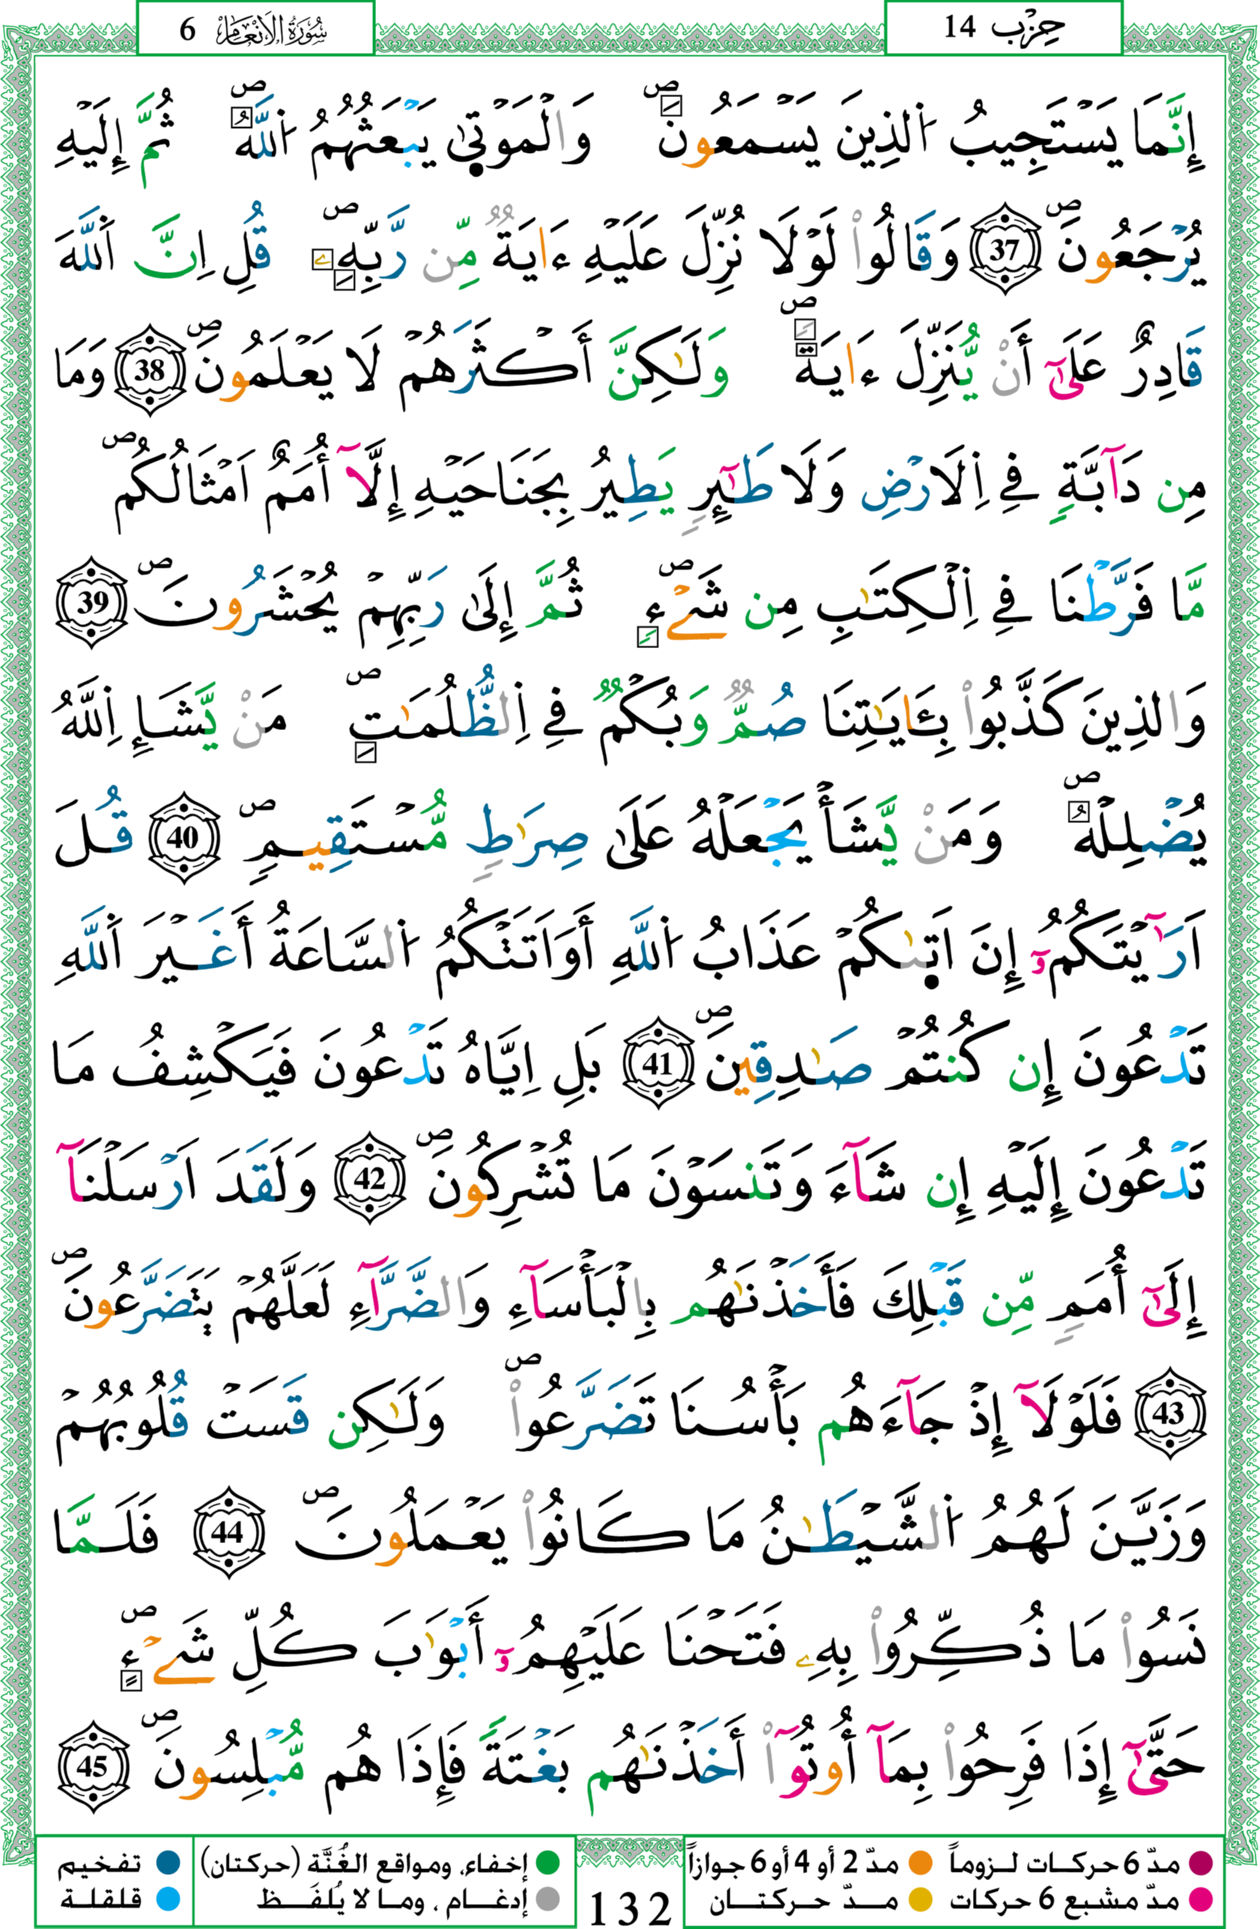 سُورَةُ الأَنْعَامِ 6
حِزْب 14
إِنَّمَا يَسْتَجِيبُ اُ۬لذِينَ يَسْمَعُونَۖ وَالْمَوْت۪يٰ يَبْعَثُهُمُ اُ۬للَّهُۖ ثُمَّ إِلَيْهِ
يُرْجَعُونَۖ 37 وَقَالُواْ لَوْلَا نُزِّلَ عَلَيْهِ ءَايَةٞ مِّن رَّبِّهِۦۖ قُلِ اِنَّ اَ۬للَّهَ
قَادِرٌ عَلَىٰٓ أَنْ يُّنَزِّلَ ءَايَةٗۖ وَلَٰكِنَّ أَكْثَرَهُمْ لَا يَعْلَمُونَۖ 38 وَمَا
مِن دَآبَّةٖ فِے اِ۬لَارْضِ وَلَا طَٰٓئِرٖ يَطِيرُ بِجَنَاحَيْهِ إِلَّآ أُمَمٌ اَمْثَالُكُمۖ
مَّا فَرَّطْنَا فِے اِ۬لْكِتَٰبِ مِن شَےْءٖۖ ثُمَّ إِلَىٰ رَبِّهِمْ يُحْشَرُونَۖ 39
وَالذِينَ كَذَّبُواْ بِـَٔايَٰتِنَا صُمّٞ وَبُكْمٞ فِے اِ۬لظُّلُمَٰتِۖ مَنْ يَّشَإِ اِ۬للَّهُ
يُضْلِلْهُۖ وَمَنْ يَّشَأْ يَجْعَلْهُ عَلَىٰ صِرَٰطٖ مُّسْتَقِيمٖۖ 40 قُلَ
اَرَٰٓيْتَكُمُۥٓ إِنَ اَت۪يٰكُمْ عَذَابُ اُ۬للَّهِ أَوَ اَتَتْكُمُ اُ۬لسَّاعَةُ أَغَيْرَ اَ۬للَّهِ
تَدْعُونَ إِن كُنتُمْ صَٰدِقِينَۖ 41 بَلِ اِيَّاهُ تَدْعُونَ فَيَكْشِفُ مَا
تَدْعُونَ إِلَيْهِ إِن شَآءَ وَتَنسَوْنَ مَا تُشْرِكُونَۖ 42 وَلَقَدَ اَرْسَلْنَآ
إِلَىٰٓ أُمَمٖ مِّن قَبْلِكَ فَأَخَذْنَٰهُم بِالْبَأْسَآءِ وَالضَّرَّآءِ لَعَلَّهُمْ يَتَضَرَّعُونَۖ
43 فَلَوْلَآ إِذْ جَآءَهُم بَأْسُنَا تَضَرَّعُواْۖ وَلَٰكِن قَسَتْ قُلُوبُهُمْ
وَزَيَّنَ لَهُمُ اُ۬لشَّيْطَٰنُ مَا كَانُواْ يَعْمَلُونَۖ 44 فَلَمَّا
نَسُواْ مَا ذُكِّرُواْ بِهِۦ فَتَحْنَا عَلَيْهِمُۥٓ أَبْوَٰبَ كُلِّ شَےْءٍۖ
حَتَّىٰٓ إِذَا فَرِحُواْ بِمَآ أُوتُوٓاْ أَخَذْنَٰهُم بَغْتَةٗ فَإِذَا هُم مُّبْلِسُونَۖ 45
مدّ 6 حركات لـزوماً مدّ 2 أو 4 أو 6 جوازاً إخفاء، ومواقع الغُنَّة (حركتان) تفخيم
مدّ مشبع 6 حركات مـدّ حـركتـان إدغـام ، ومـا لا يُلفَـظ قلقلـة
132